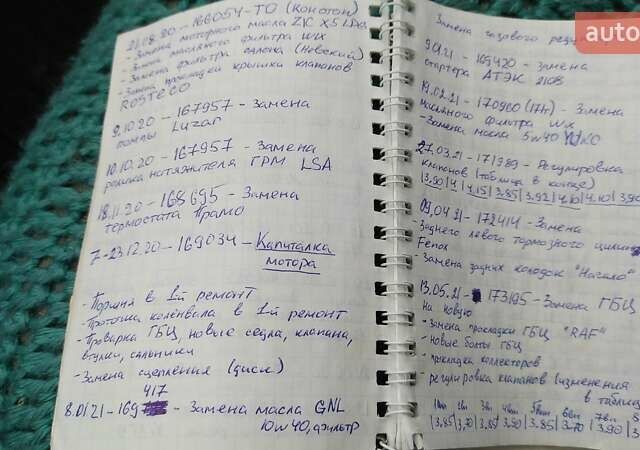 21.08.20 - 166054 - ТО (Конотоп)
- Замена моторного масла ZIC X5 LPG
- Замена масляного фильтра wix
- Замена фильтра салона (Невский)
- Замена прокладки крышки клапанов
ROSTECO
9.10.20 - 167957 - Замена
помпы Luzar
10.10.20 - 167957 - Замена
ролика натяжителя ГРМ LSA
18.11.20 - 168695 - Замена
термостата Прамо
7-23.12.20 - 169034 - Капиталка
мотора
- Поршня в 1-й ремонт
- Проточка коленвала в 1-й ремонт
- Проварка ГБЦ, новые седла, клапана,
втулки, сальники
- Замена сцепления (диск)
417
8.01.21 - 169 - Замена масла GNL
10w40, фильтр
Замена газового
9.01.21 - 169420 - замена
стартера АТЭК 2108
19.02.21 - 170960 (17h) - Замена
масляного фильтра wx
- Замена масла 5w40
27.03.21 - 171989 - Регулировка
клапанов (таблица в конце)
|3,90|4|4,15|3,85|3,92|4,10|4,10|3,90
09.04.21 - 172414 - Замена
- Заднего левого тормозного
Fenox
- Замена задних колодок "Начало"
13.05.21 - 173195 - Замена ГБЦ
на новую
- замена прокладки ГБЦ "RAF"
- новые болты ГБЦ
- прокладка коллекторов
- регулировка клапанов (изменения
в таблиц
1кл 2кл 3кл 4кл 5кл 6кл 7кл 8
|3,85|3,70|3,85|3,90|3,85|3,70|3,90|3,
auto